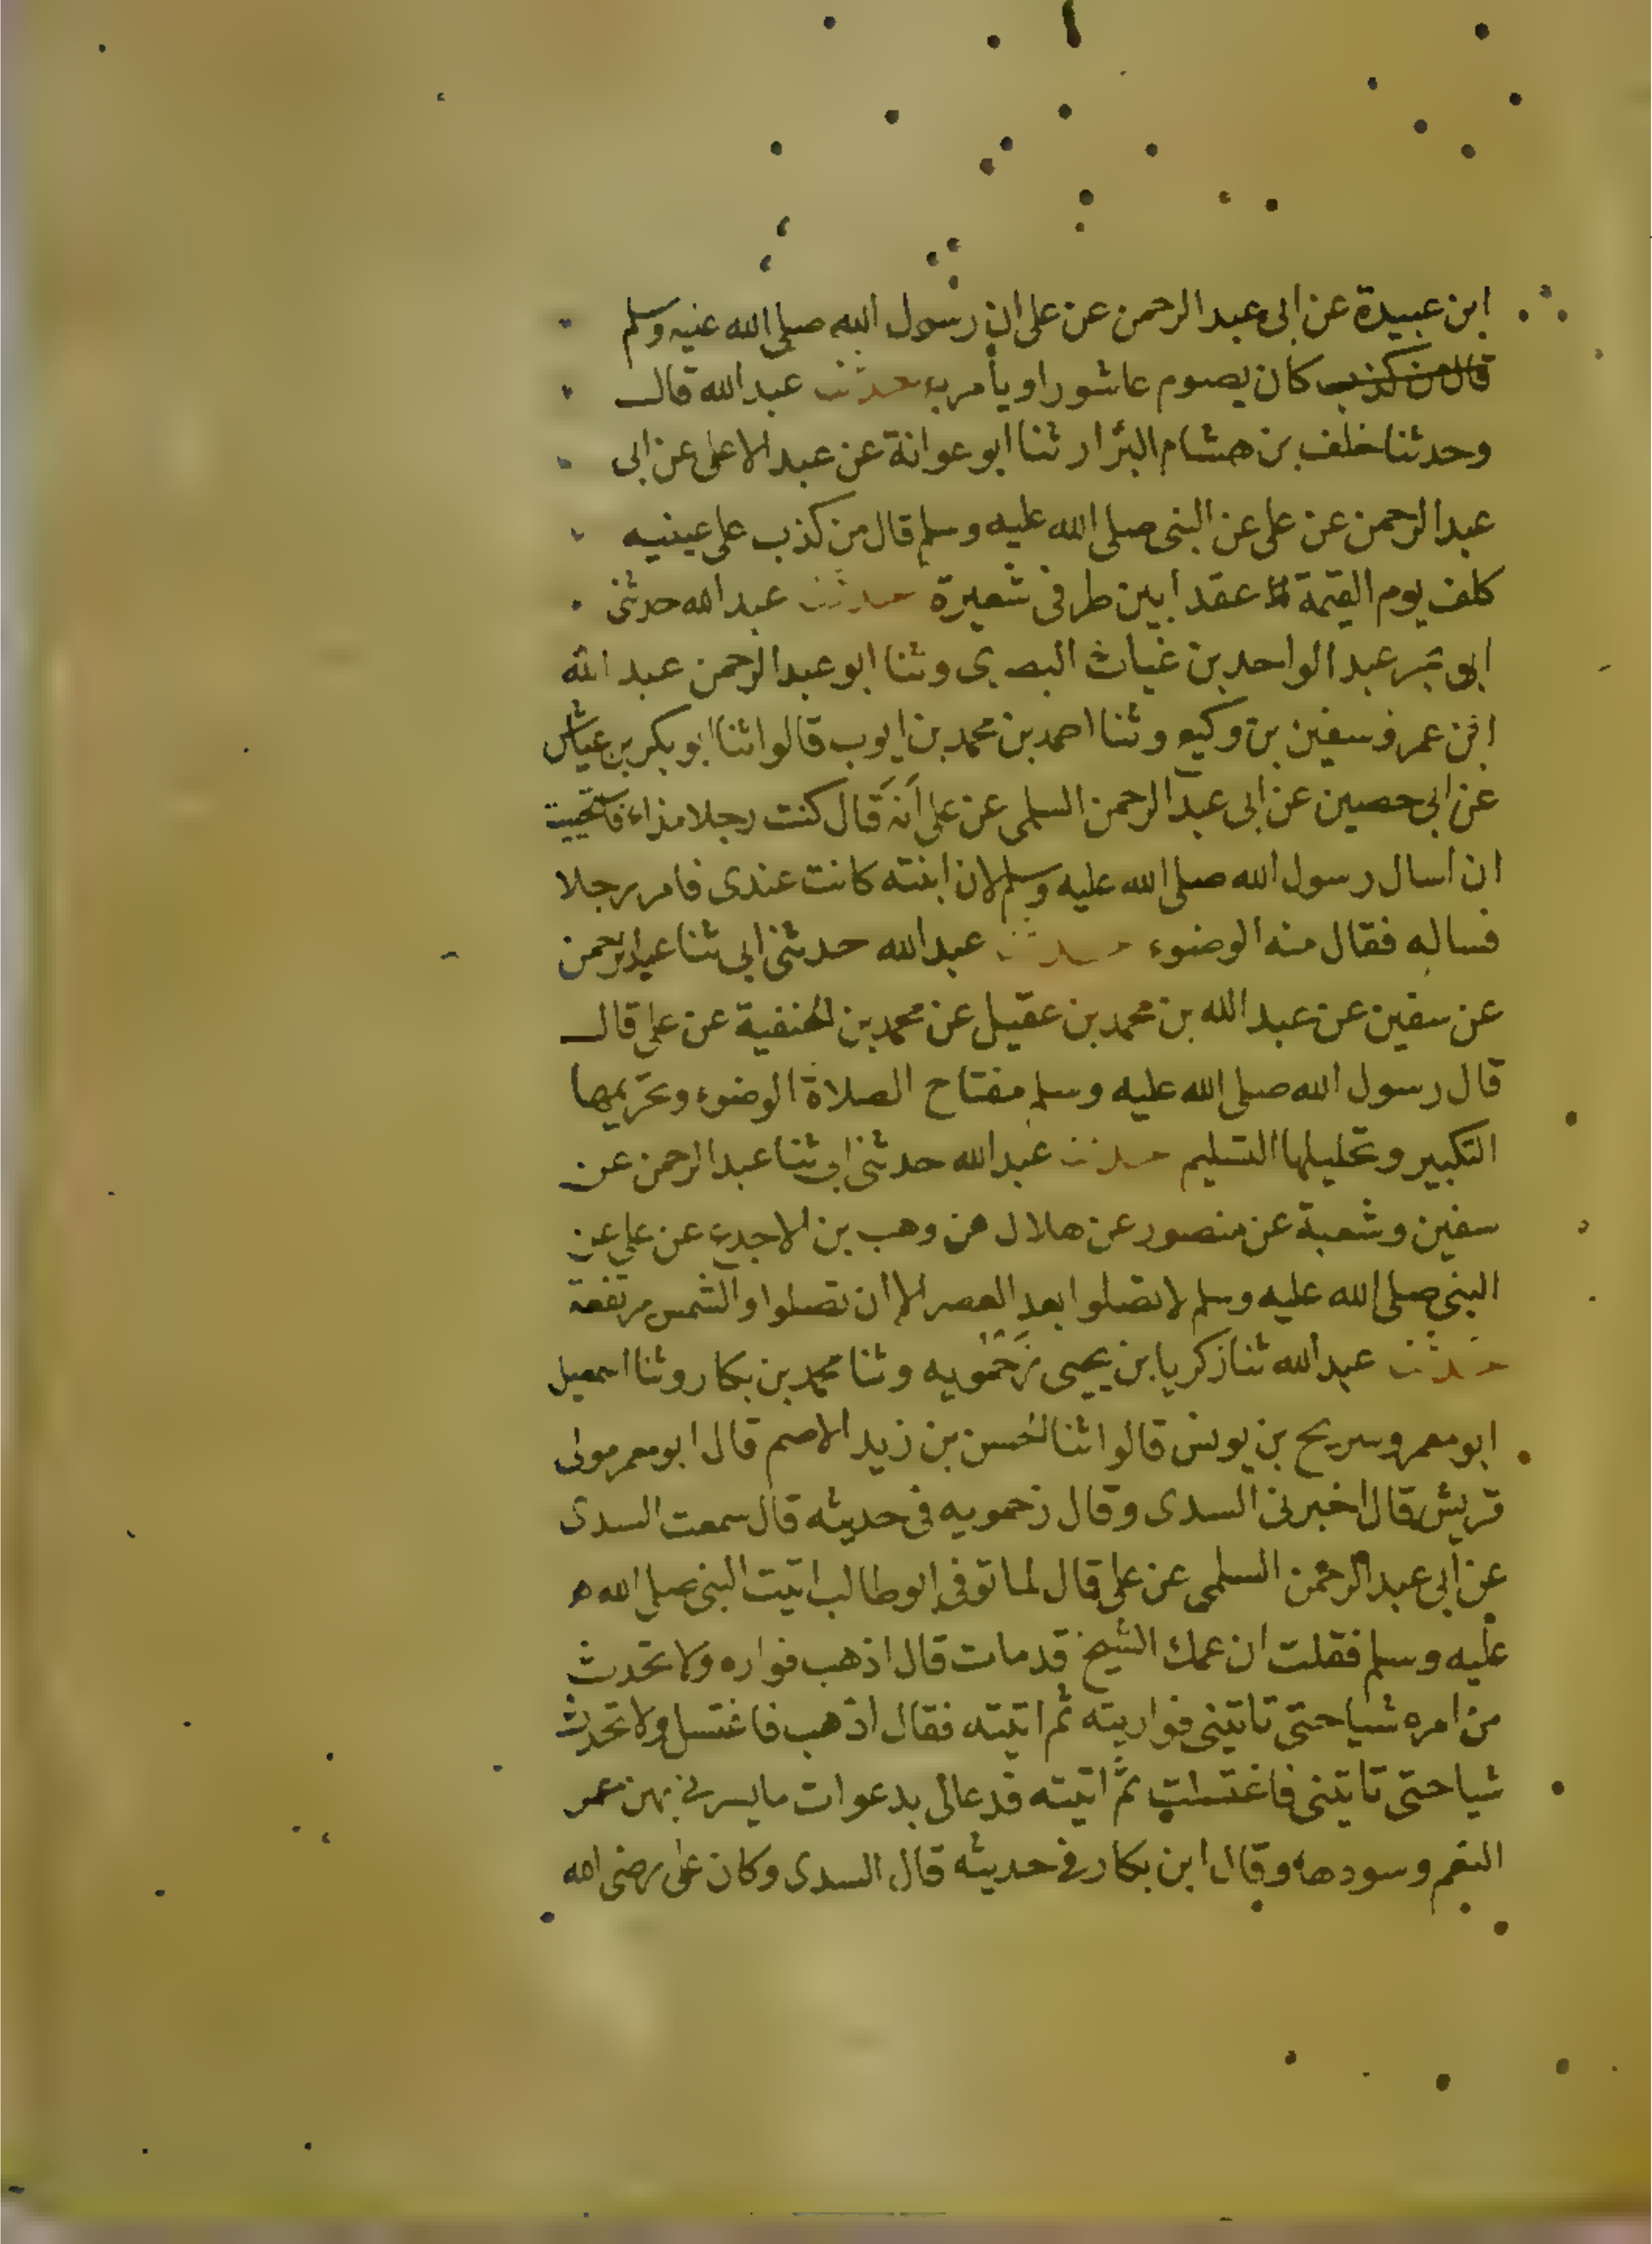 ابن عبيدة عن ابى عبد الرحمن عن على ان رسول الله صلى الله عليه وسلم
قال من كذب كان يصوم عاشورا ويأمر به حدثنا عبد الله قال
وحدثنا خلف بن هشام البزار ثنا ابو عوانة عن عبد الاعلى عن ابى
عبد الرحمن عن على عن النبى صلى الله عليه وسلم قال من كذب على عينيه
كلف يوم القيمة عقدا بين طرفى شعيرة حدثنا عبد الله حدثنى
ابو بحر عبد الواحد بن غياث البصرى وثنا ابو عبد الرحمن عبد الله
ابن عمر وسفين بن وكيع وثنا احمد بن محمد بن ايوب قالوا ثنا ابو بكر بن عياش
عن ابى حصين عن ابى عبد الرحمن السلمى عن على انه قال كنت رجلا مذاء فاستحييت
ان اسال رسول الله صلى الله عليه وسلم لان ابنته كانت عندى فامر رجلا
فساله فقال منه الوضوء حدثنا عبد الله حدثنى ابى ثنا عبد الرحمن
عن سفين عن عبد الله بن محمد بن عقيل عن محمد بن الحنفية عن على قال
قال رسول الله صلى الله عليه وسلم مفتاح الصلاة الوضوء وتحريمها
التكبير وتحليلها التسليم حدثنا عبد الله حدثنى ابى ثنا عبد الرحمن عن
سفين وشعبة عن منصور عن هلال عن وهب بن الاجدع عن على عن
النبى صلى الله عليه وسلم لا تصلوا بعد العصر الا ان تصلوا والشمس مرتفعة
حدثنا عبد الله ثنا زكريا بن يحيى زحمويه وثنا محمد بن بكار وثنا اسمعيل
ابو معمر وسريج بن يونس قالوا ثنا الحسن بن زيد الاصم قال ابو معمر مولى
قريش قال اخبرنى السدى وقال زحمويه فى حديثه قال سمعت السدى
عن ابى عبد الرحمن السلمى عن على قال لما توفى ابو طالب اتيت النبى صلى الله
عليه وسلم فقلت ان عمك الشيخ قد مات قال اذهب فواره ولا تحدث
من امره شيا حتى تاتينى فواريته ثم اتيته فقال اذهب فاغتسل ولا تحدث
شيا حتى تاتينى فاغتسلت ثم اتيته فدعا لى بدعوات ما يسرنى بهن حمر
النعم وسودها وقال ابن بكار فى حديثه قال السدى وكان على رضى الله